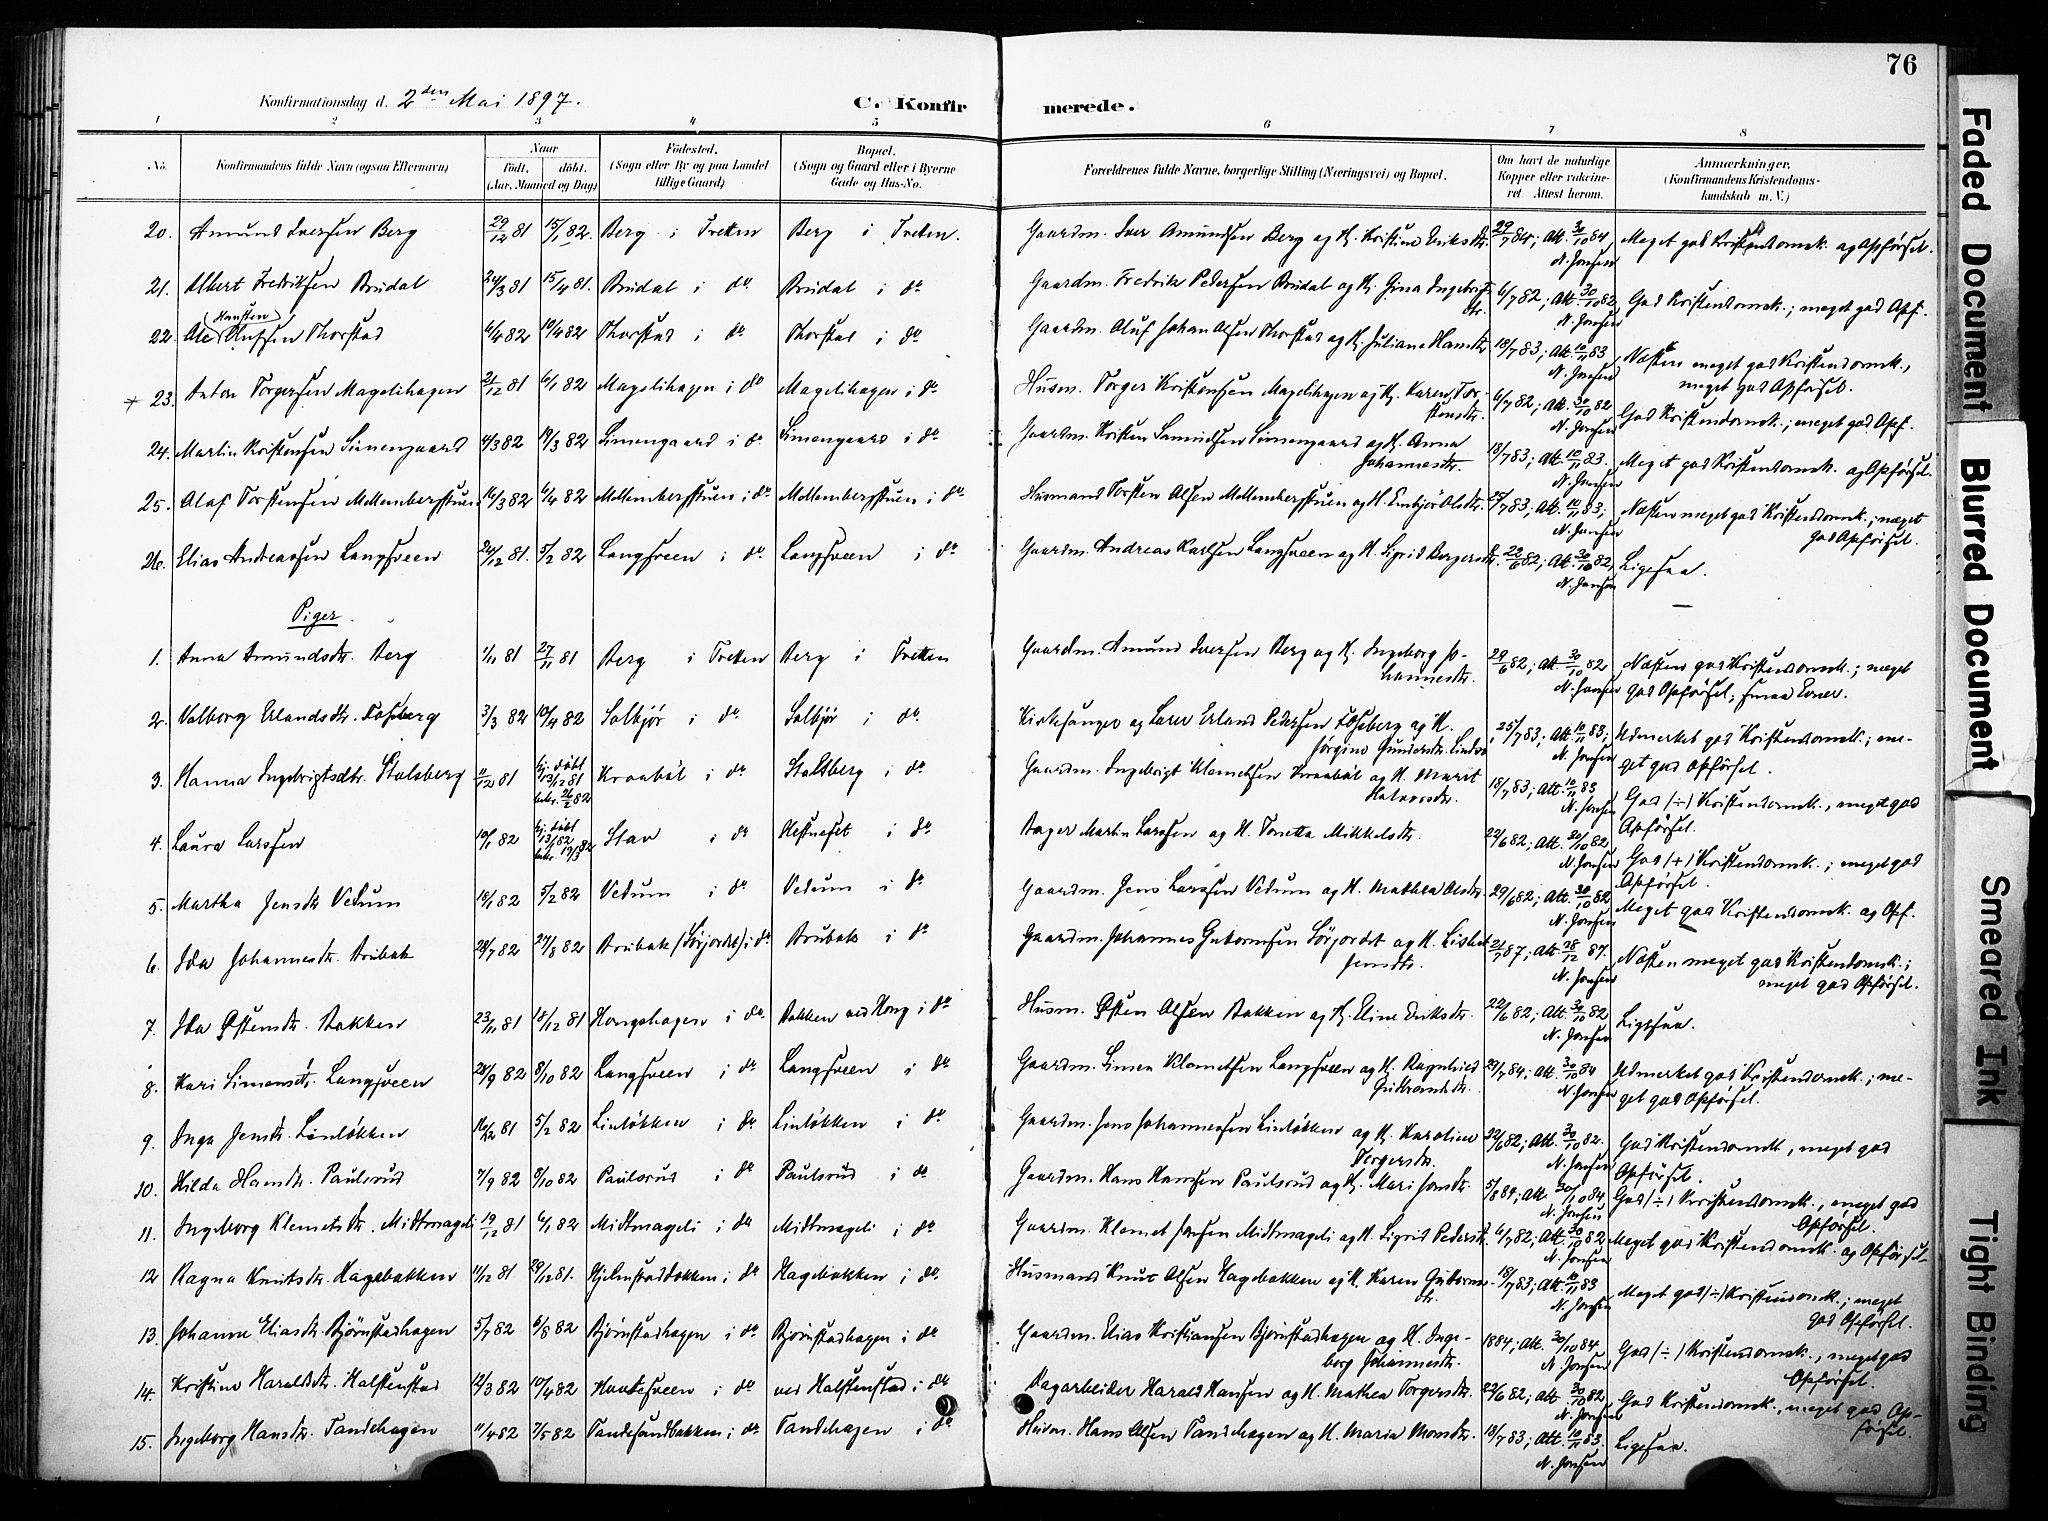 76
Konfirmationsdag d. 2den Mai 1897.
C. Konfirmerede.
1 2 3 4 5 6 7 8
No. Konfirmandens fulde Navn (ogsaa Efternavn) Naar født. døbt. (Aar, Maaned og Dag) Fødested. (Sogn eller By og paa Landet tillige Gaard) Bopæl. (Sogn og Gaard eller i Byerne Gade og Hus-No. Forældrenes fulde Navne, borgerlige Stilling (Næringsvei) og Bopæl. Om havt de naturlige Kopper eller vakcineret. Attest herom. Anmærkninger. (Konfirmandens Kristendomskundskab m. V.)
20. Amund Iversen Berg 29/12 81 15/1 82. Berg i Tretten Berg i Tretten. Gaardm. Iver Amundsen Berg og H. Kristine Eriksdtr. 29/7 84; Att. 30/10 84 N. Jonsen Meget god Kristendomsk. og Opførsel.
21. Albert Fredriksen Brudal 24/3 81 15/4 81. Brudal i do Brudal i do Gaardm. Fredrik Pedersen Brudal og H. Gina Ingebrigtsdtr. 6/7 82; Att. 30/10 82 N. Jonsen God Kristendomsk.; meget god Opf.
22. Ole (Hansen) Olufsen Thorstad 6/4 82 10/4 82 Thorstad i do Thorstad i do Gaardm. Oluf Johan Olsen Thorstad og H. Juliane Hansdtr. 18/7 83; Att. 10/11 83 N. Jonsen Næsten meget god Kristendomsk., meget god Opførsel.
+ 23. Anton Torgersen Magelihagen 21/12 81 6/1 82 Magelihagen i do Magelihagen i do Husm. Torger Kristensen Magelihagen og H. Karen Torstensdtr. 6/7 82; Att. 30/10 82 N. Jonsen God Kristendomsk.; meget god Opf.
24. Martin Kristensen Simengaard 4/3 82 19/3 82 Simengaard i do. Simengaard i do Gaardm. Kristen Simensen Simengaard og H. Anna Johannesdtr. 18/7 83; Att. 10/11 83. N. Jonsen Meget god Kristendomsk. og Opførsel.
25. Olaf Torstensen Mellembergstuen 16/3 82 6/4 82 Mellembergstuen i do. Mellembergstuen i do Husmand Torsten Olsen Mellembergstuen og H. Embjør Olsdtr. 25/7 83; Att. 10/11 83; N. Jonsen Næsten meget god Kristendomsk.; meget god Opførsel.
26. Elias Andreassen Langsveen 24/12 81. 5/2 82 Langsveen i do Langsveen i do Gaardm. Andreas Karlsen Langsveen og H. Sigrid Borgersdtr. 22/6 82; Att. 30/10 82, N. Jonsen Ligesaa.
Piger.
1. Anna Amundsdtr. Berg 1/11 81 27/11 81 Berg i Tretten Berg i Tretten Gaardm. Amund Iversen Berg og H. Ingeborg Johannesdtr. 29/6 82; Att. 30/10 82 N. Jonsen Næsten god Kristendomsk.; meget god Opførsel; smaa Evner.
2. Valborg Erlandsdtr. Fosberg 3/3 82 10/4 82 Solbjør i do. Solbjør i do. Kirkesanger og Lærer Erland Pedersen Fosberg og H. Jørgine Gundersdtr. 25/7 83; Att. 10/11 83; N. Jonsen Udmerket god Kristendomsk.; meget god Opførsel.
3. Hanna Ingebrigtsdtr. Stalsberg 11/12 81 hj. døbt 13/12 81 bekr. 26/2 82 Kraabøl i do Stalsberg i do Gaardm. Ingebrigt Klemetsen Kraabøl og H. Marit Halvorsdtr. 18/7 83; Att. 10/11 83 N. Jonsen God (÷) Kristendomsk., meget god Opførsel.
4. Laura Larssen 10/1 82 hj. døbt 13/1 82 bekr. 19/3 82 Stav i do i do Bager Martin Larssen og H. Tonetta Mikkelsdtr. 22/6 82; Att. 30/10 82 N. Jonsen God (+) Kristendomsk.; meget god Opførsel.
5. Martha Jensdtr Vedum 18/1 82 5/2 82 Vedum i do Vedum i do Gaardm. Jens Larssen Vedum og H. Mathea Olsdtr. 29/6 82; Att. 30/10 82 N. Jonsen Meget god Kristendomsk. og Opf.
6. Ida Johannesdtr. Brubak 28/7 82 27/8 82 Brubak (Sørjordet) i do Brubak i do Gaardm. Johannes Gutormsen Sørjordet og H. Lisbet Jensdtr. 21/7 87; Att. 28/12 87. N. Jonsen Næsten meget god Kristendomsk.; meget god Opførsel.
7. Ida Østensdtr. Bakken 23/11 81 18/12 81 Kongshagen i do. Bakken ved Kong i do Husm. Østen Olsen Bakken og H. Eline Eriksdtr. 22/6 82; Att. 30/10 82 N. Jonsen Ligesaa.
8. Kari Simensdtr. Langsveen 24/9 82 8/10 82 Langsveen i do Langsveen i do Gaardm. Simen Klemetsen Langsveen og H. Ragnhild Gudbrandsdtr. 29/7 84; Att. 30/10 84 N. Jonsen Udmerket god Kristendomsk.; meget god Opførsel.
9. Inga Jensdtr. Linløkken 16/12 81 5/2 82 Linløkken i do Linløkken i do Gaardm. Jens Johannessen Linløkken og H. Karoline Torgersdtr. 22/6 82; Att. 30/10 82. N. Jonsen God Kristendomsk., meget god Opførsel.
10. Hilda Hansdtr. Paulsrud 7/9 82 8/10 82 Paulsrud i do Paulsrud i do Gaardm. Hans Hansen Paulsrud og H. Mari Jonsdtr. 5/8 84, Att. 30/10 84 N. Jonsen God (÷) Kristendomsk., meget god Opførsel.
11. Ingeborg Klemetsdtr. Midtmageli 19/12 81 6/1 82 Midtmageli i do Midtmageli i do Gaardm. Klemet Jonsen Midtmageli og H. Sigrid Pedersdtr. 6/7 82; Att. 30/10 82 N. Jonsen Meget god Kristendomsk. og Opførsel.
12 Ragna Knutsdtr. Hagebakken 11/12 81 29/12 81. Hjelmstadbakken i do Hagebakken i do. Husmand Knut Olsen Hagebakken og H. Karen Gutormsdtr. 18/7 83; Att. 10/11 83 N. Jonsen Meget god (÷) Kristendomsk.; meget god Opførsel.
13. Johanne Eliasdtr. Bjørnstadhagen 5/7 82 6/8 82 Bjørnstadhagen i do Bjørnstadhagen i do Gaardm. Elias Kristiansen Bjørnstadhagen og H. Ingeborg Johannesdtr. 1884; Att. 30/10 84 N. Jonsen God (÷) Kristendomsk., meget god Opførsel.
14. Kristine Haraldsdtr. Halstenstad 12/3 82 10/4 82 Haakesveen i do ved Halstenstad i do Dagarbeider Harald Hansen og H. Mathea Torgersdtr. 22/6 82; Att 30/10 82 N. Jonsen God Kristendomsk., meget god Opførsel.
15. Ingeborg Hansdtr. Tandehagen 11/4 82 7/5 82 Tandesandbakken i do Tandehagen i do Husm. Hans Olsen Tandehagen og H. Maria Monsdtr. 18/7 83; Att. 10/11 83. N. Jonsen Ligesaa.
Faded Document
Blurred Document
Smeared Ink
Tight Binding